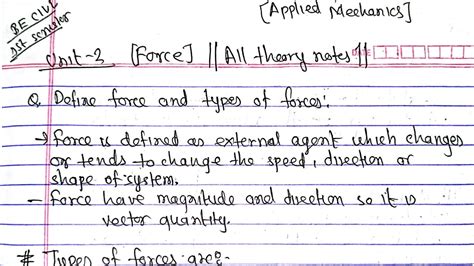 [Applied Mechanics]
BE CIVIL
1st semister
Unit-3 [Force] || All theory notes ||
Q. Define force and types of forces:
→ Force is defined as external agent which changes
or tends to change the speed, direction or
shape of system.
- Force have magnitude and direction so it is
vector quantity.
# Types of forces are:-